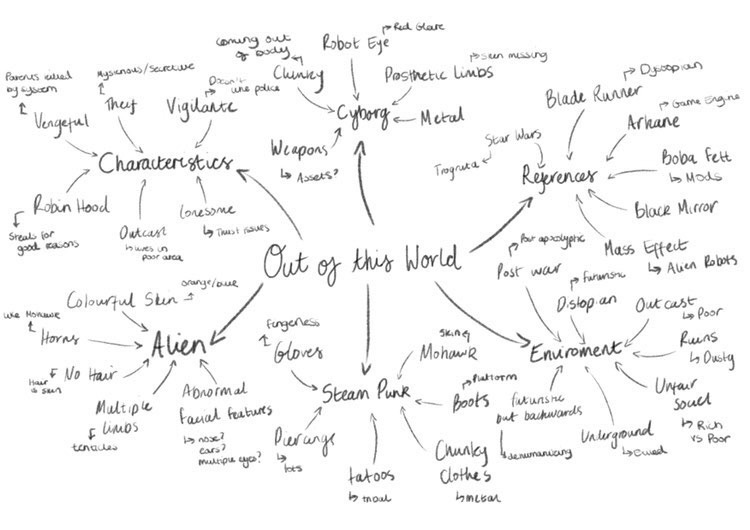 coming out
of body
Robot Eye
Red Glare
Clunky
Prosthetic Limbs
seen missing
Cyborg
Metal
Weapons
Assets?
Parents killed
by system
Vengeful
Mysterious/Secretive
Theif
Doesn't
like police
Vigilante
Characteristics
Robin Hood
Steals for
good reasons
Outcast
lives in
poor area
Lonesome
Trust issues
Blade Runner
Dystopian
Star Wars
Togruta
Arkane
Game Engine
References
Boba Fett
Mods
Black Mirror
Mass Effect
Alien Robots
Out of this World
Colourful Skin
orange/blue
like Mohawk
Horns
Alien
No Hair
Hair
is skin
Multiple
limbs
tentacles
Abnormal
facial features
nose?
ears?
multiple eyes?
Fingerless
Gloves
Steam Punk
Mohawk
Platform
Boots
Piercings
lots
tatoos
tribal
Chunky
Clothes
metal
Post apocalyptic
Post war
Futuristic
Distopian
Outcast
Poor
Enviroment
Ruins
Dusty
Unfair
Rich
vs Poor
futuristic
but backwards
dehumanising
Underground